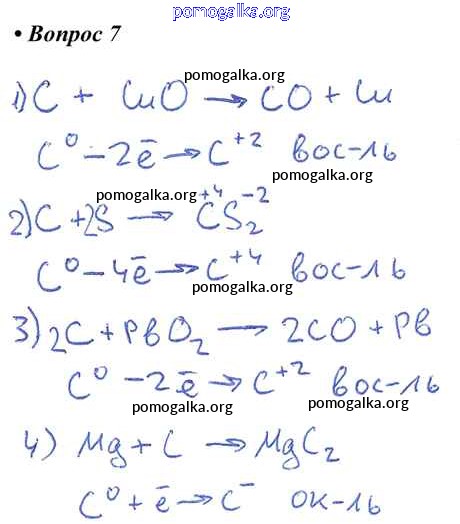 pomogalka.org
• Вопрос 7
pomogalka.org
1) C + CuO → CO + Cu
C⁰ – 2ē → C⁺² вос-ль
pomogalka.org
pomogalka.org
2) C + 2S → C⁺⁴S₂⁻²
C⁰ – 4ē → C⁺⁴ вос-ль
pomogalka.org
3) 2C + PbO₂ → 2CO + Pb
C⁰ – 2ē → C⁺² вос-ль
pomogalka.org pomogalka.org
4) Mg + C → MgC₂
C⁰ + ē → C⁻ ок-ль